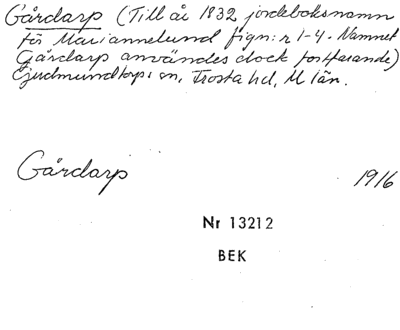 Gårdarp (Till år 1832 jordeboksnamn
för Mariannelund fign:r 1-4. Namnet
Gårdarp användes dock fortfarande)
Gudmundtorps sn, Frosta hd, M län.
Gårdarp 1916
Nr 13212
BEK